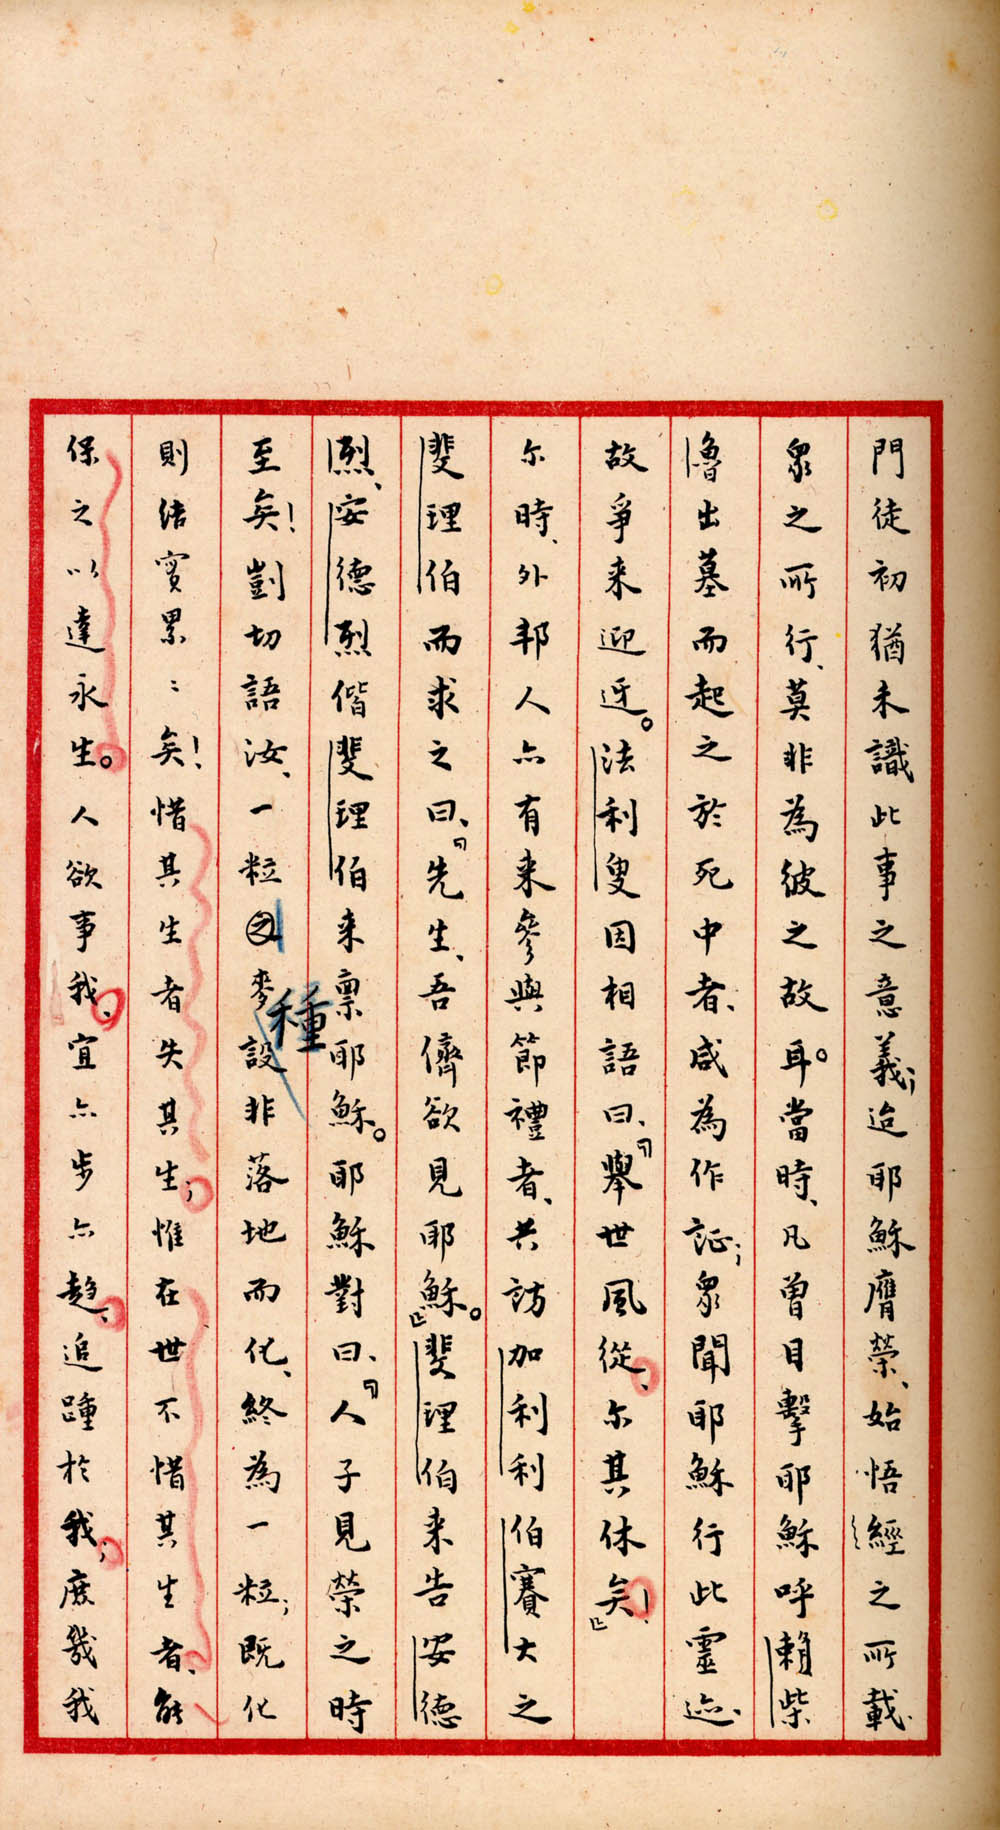 門徒初猶未識此事之意義；迨耶穌膺榮、始悟經之所載、
眾之所行、莫非為彼之故耳。當時、凡曾目擊耶穌呼賴柴
魯出墓而起之於死中者、咸為作証；眾聞耶穌行此靈迹、
故爭来迎迓。法利叟因相語曰、『舉世風從、尔其休矣！』
尔時、外邦人亦有来參與節禮者、共訪加利利伯賽大之
斐理伯而求之曰、『先生、吾儕欲見耶穌。』斐理伯来告安德
烈、安德烈偕斐理伯来禀耶穌。耶穌對曰、『人子見榮之時
至矣！剴切語汝、一粒之麥種設非落地而化、終為一粒；既化
則結實累々矣！惜其生者失其生；惟在世不惜其生者、能
保之以達永生。人欲事我、宜亦步亦趨、追踵於我；庶幾我